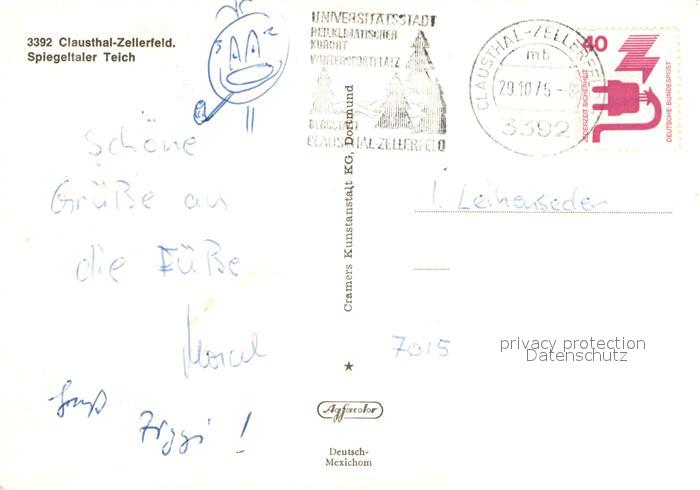 3392 Clausthal-Zellerfeld.
Spiegeltaler Teich
UNIVERSITÄTSSTADT
HEILKLIMATISCHER
KURORT
WINTERSPORTPLATZ
BERGSTADT
CLAUSTHAL-ZELLERFELD
CLAUSTHAL-ZELLERFELD
mb
29.10.75
3392
40
JEDERZEIT SICHERHEIT
DEUTSCHE BUNDESPOST
Schöne
Grüße an
die Füße
Gruß
Ziggi !
Cramers Kunstanstalt KG, Dortmund
Agfacolor
Deutsch-
Mexichom
7015
privacy protection
Datenschutz